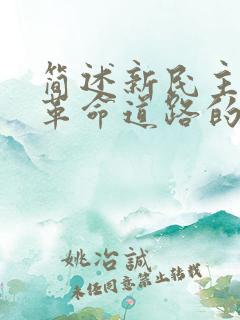 简述新民主
革命道路的
姚冶誠
未经同意禁止转载